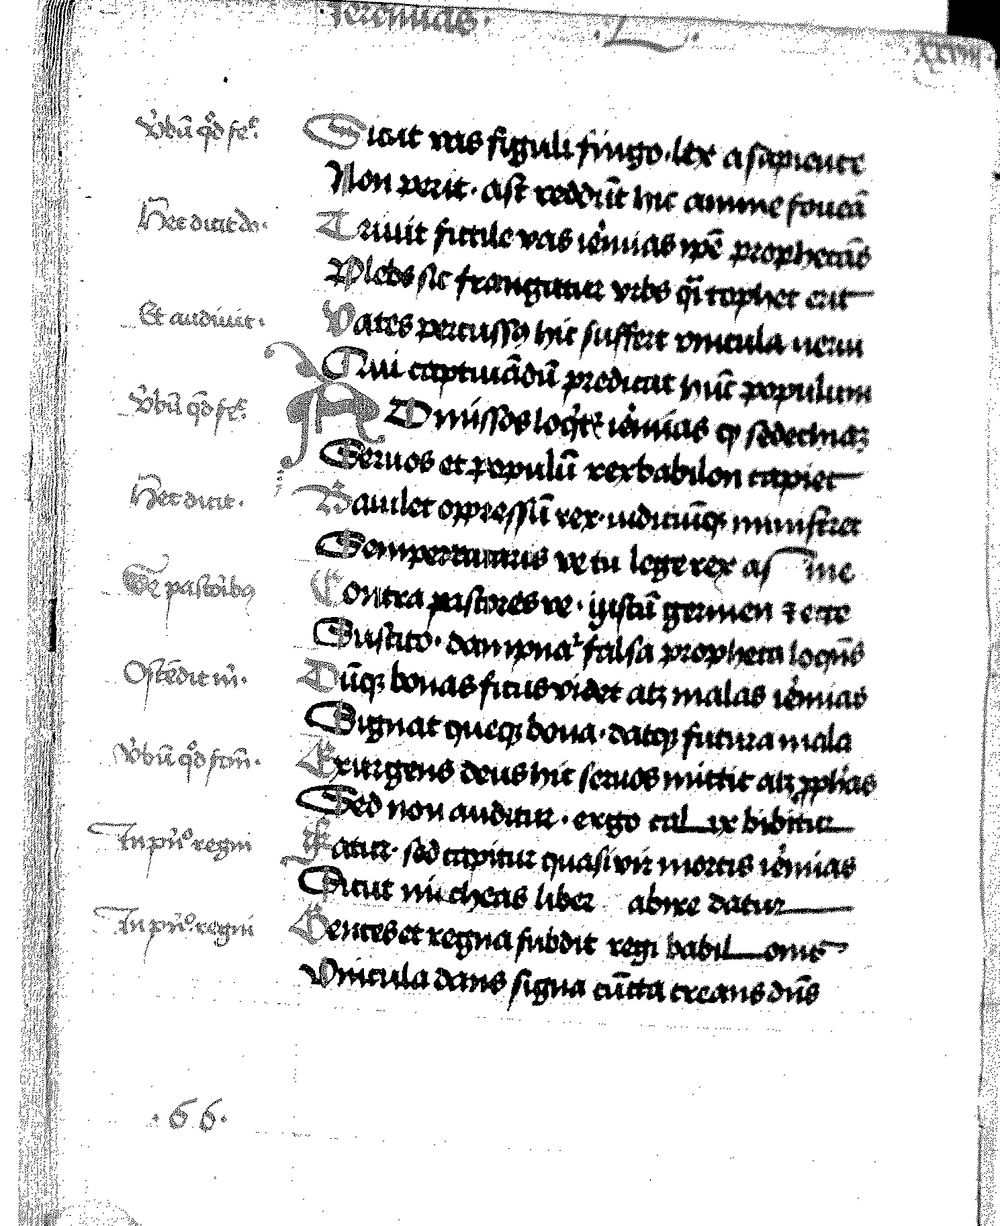 Jeremias.
Vbū qd fc̄.
Sicut vas figuli fringo. lex a sapiente
Non perit. ast reddūt hic anime foueā
Hec dicit do.
Triuit fictile vas iēmias ipē prophetās
Plebs sic frangitur vrbs qī tophet erit
Et audiuit.
Vates percussꝰ hic suffert vincula nerui
Trui captiuādū predicat hūc populum
Vbū qd fc̄.
Omissos loqt iēmias qꝫ sedechiaꝫ
Seruos et populū rex babilon capiet
Hec dicit.
Dauilet oppressū rex iudiciūqꝫ ministret
Semper ve tu lege rex as me
De pastoribꝰ
Contra pastores ve. iustū germen ⁊ ecce
Suscito. dampnat falsa propheta loqns
Ostēdit m̄.
Dūqꝫ bonas ficus videt atꝫ malas iēmias
Signat queqꝫ bona. datqꝫ futura mala
Vbū qd ftm̄.
Exurgens deus hic seruos mittit atꝫ ꝓphās
Sed non auditur. ergo calix bibitur
In prīo regni
Fatur. sed capitur quasi vir mortis iēmias
Sicut micheas liber abire datur
In prīo regni
Gentes et regna subdit regi babilonis
Vincula dans signa cūcta creans dn̄s
.66.